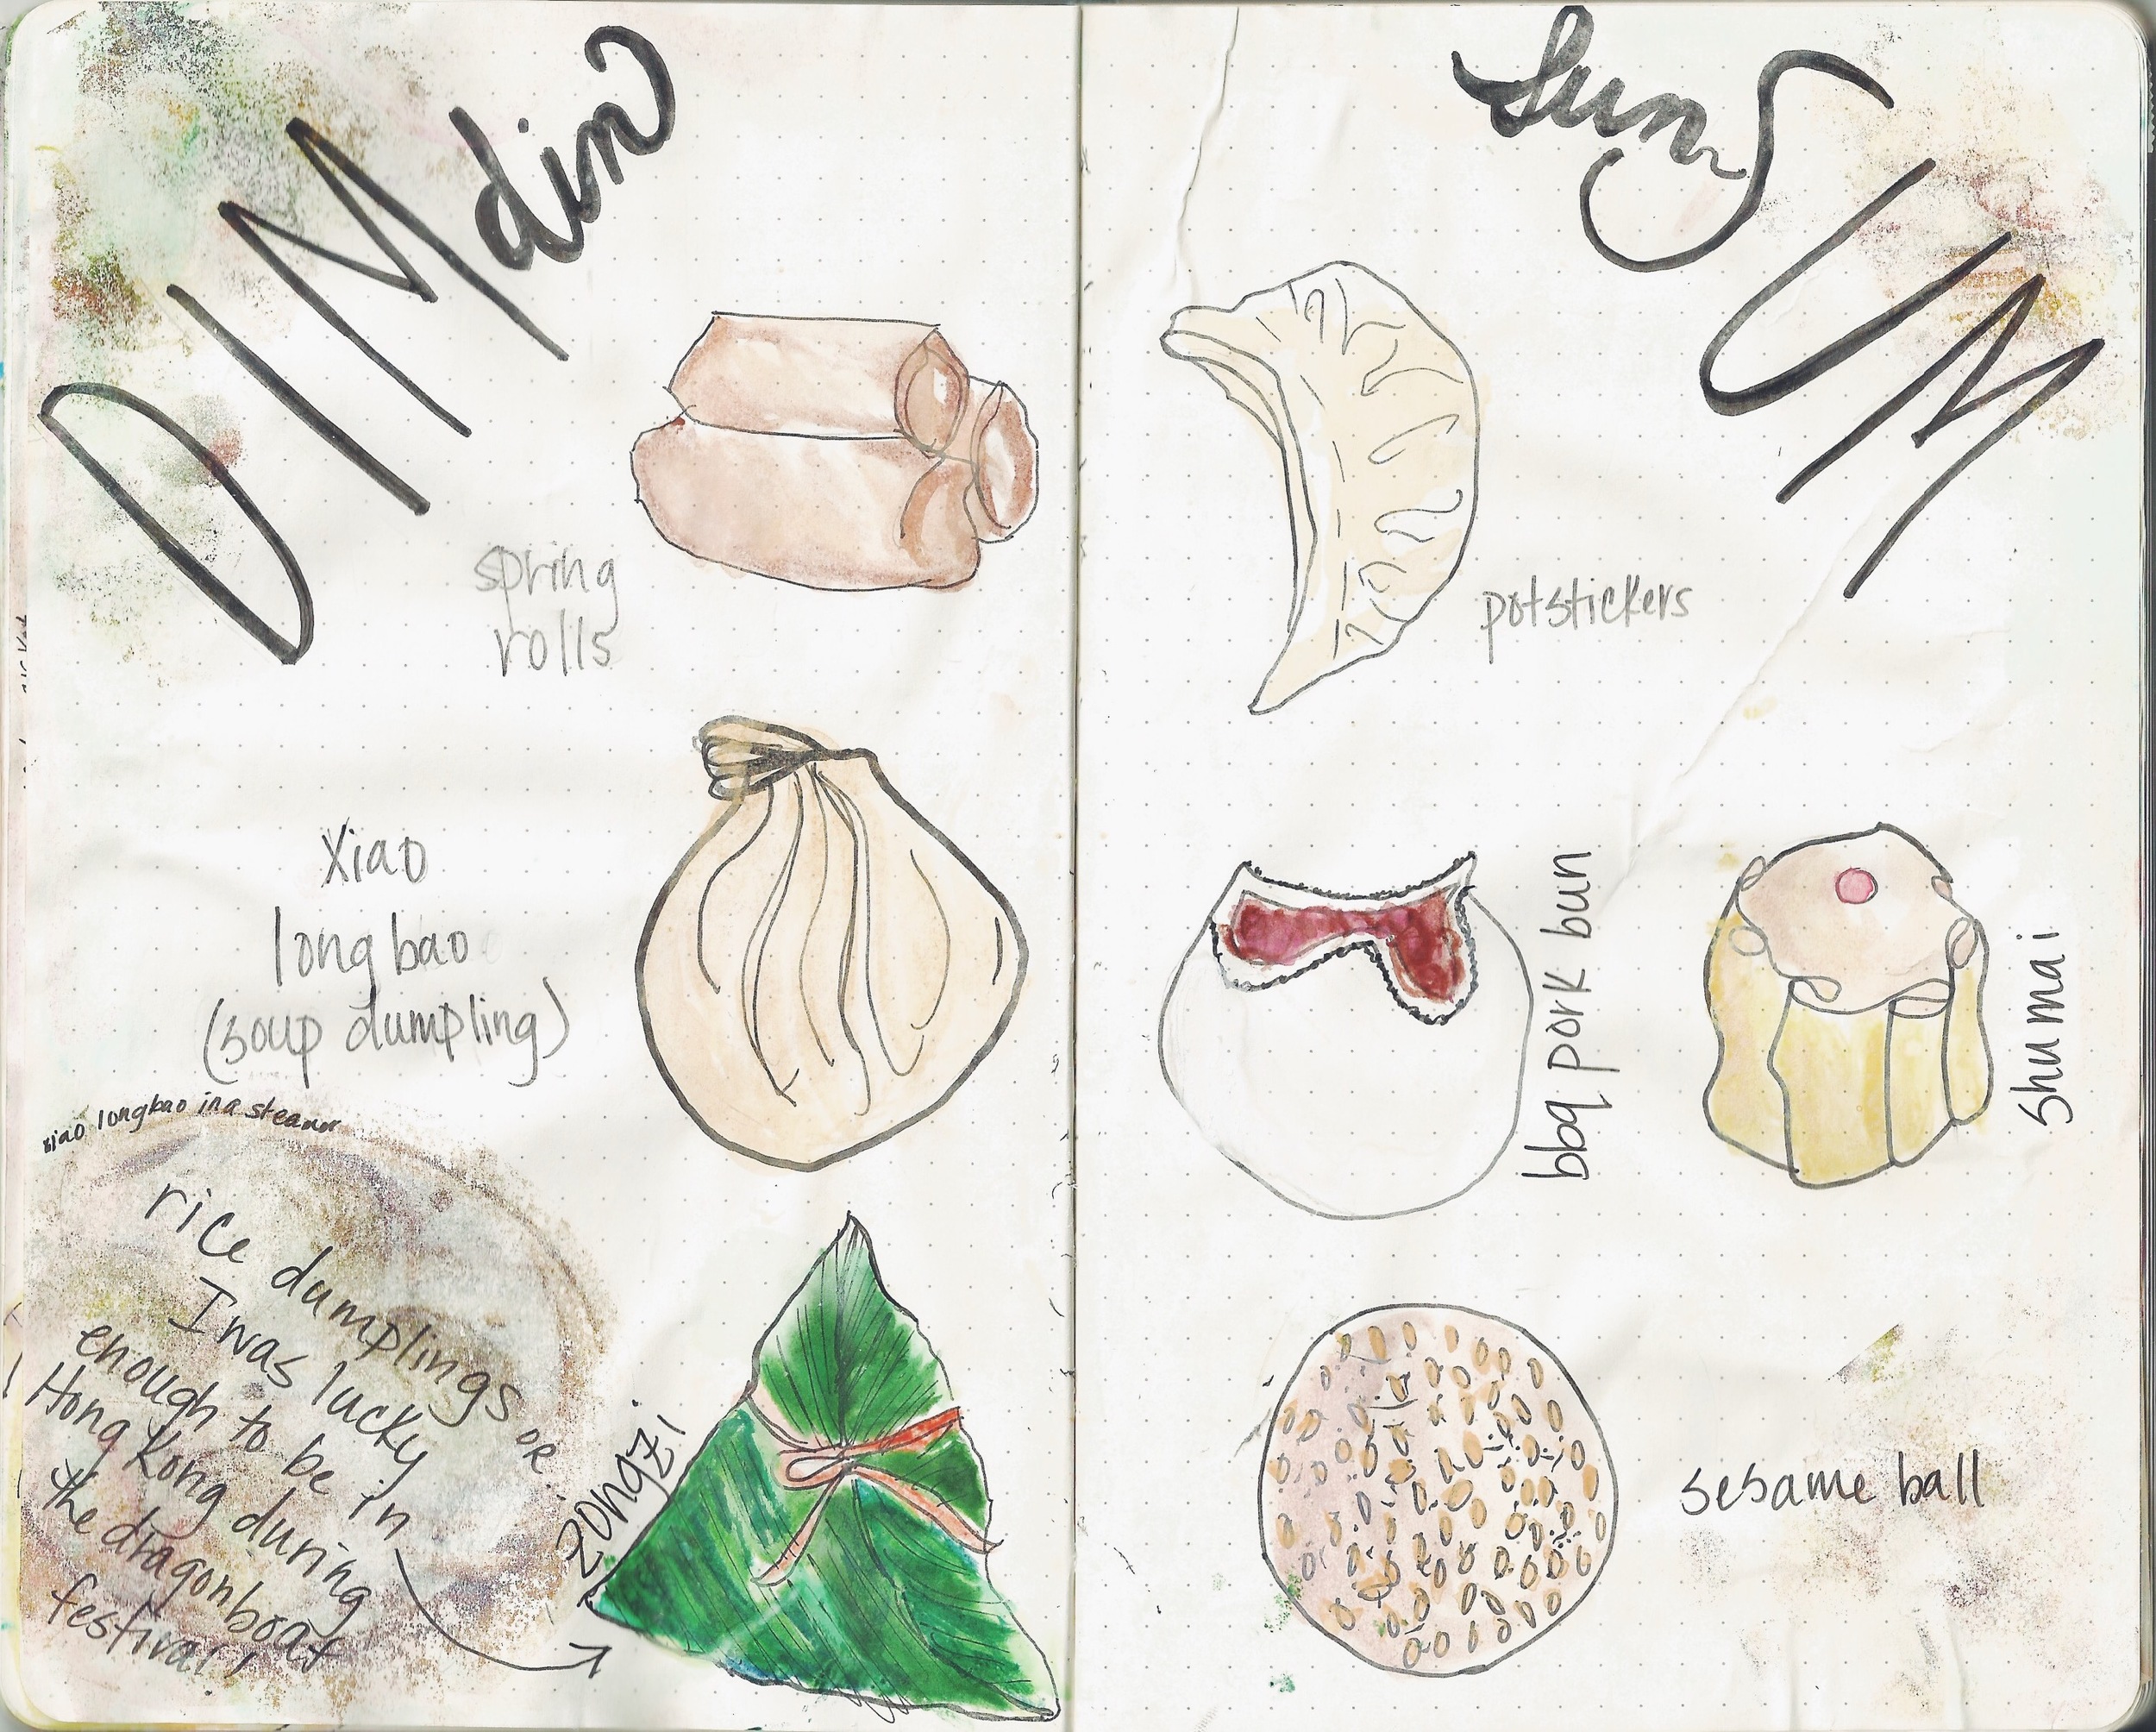 DIM dim
sum SUM
spring
rolls
xiao
long bao
(soup dumpling)
xiao longbao in a steamer
rice dumplings OR
zongzi
I was lucky
enough to be in
Hong Kong during
the dragonboat
festival!
potstickers
bbq pork bun
shumai
sesame ball